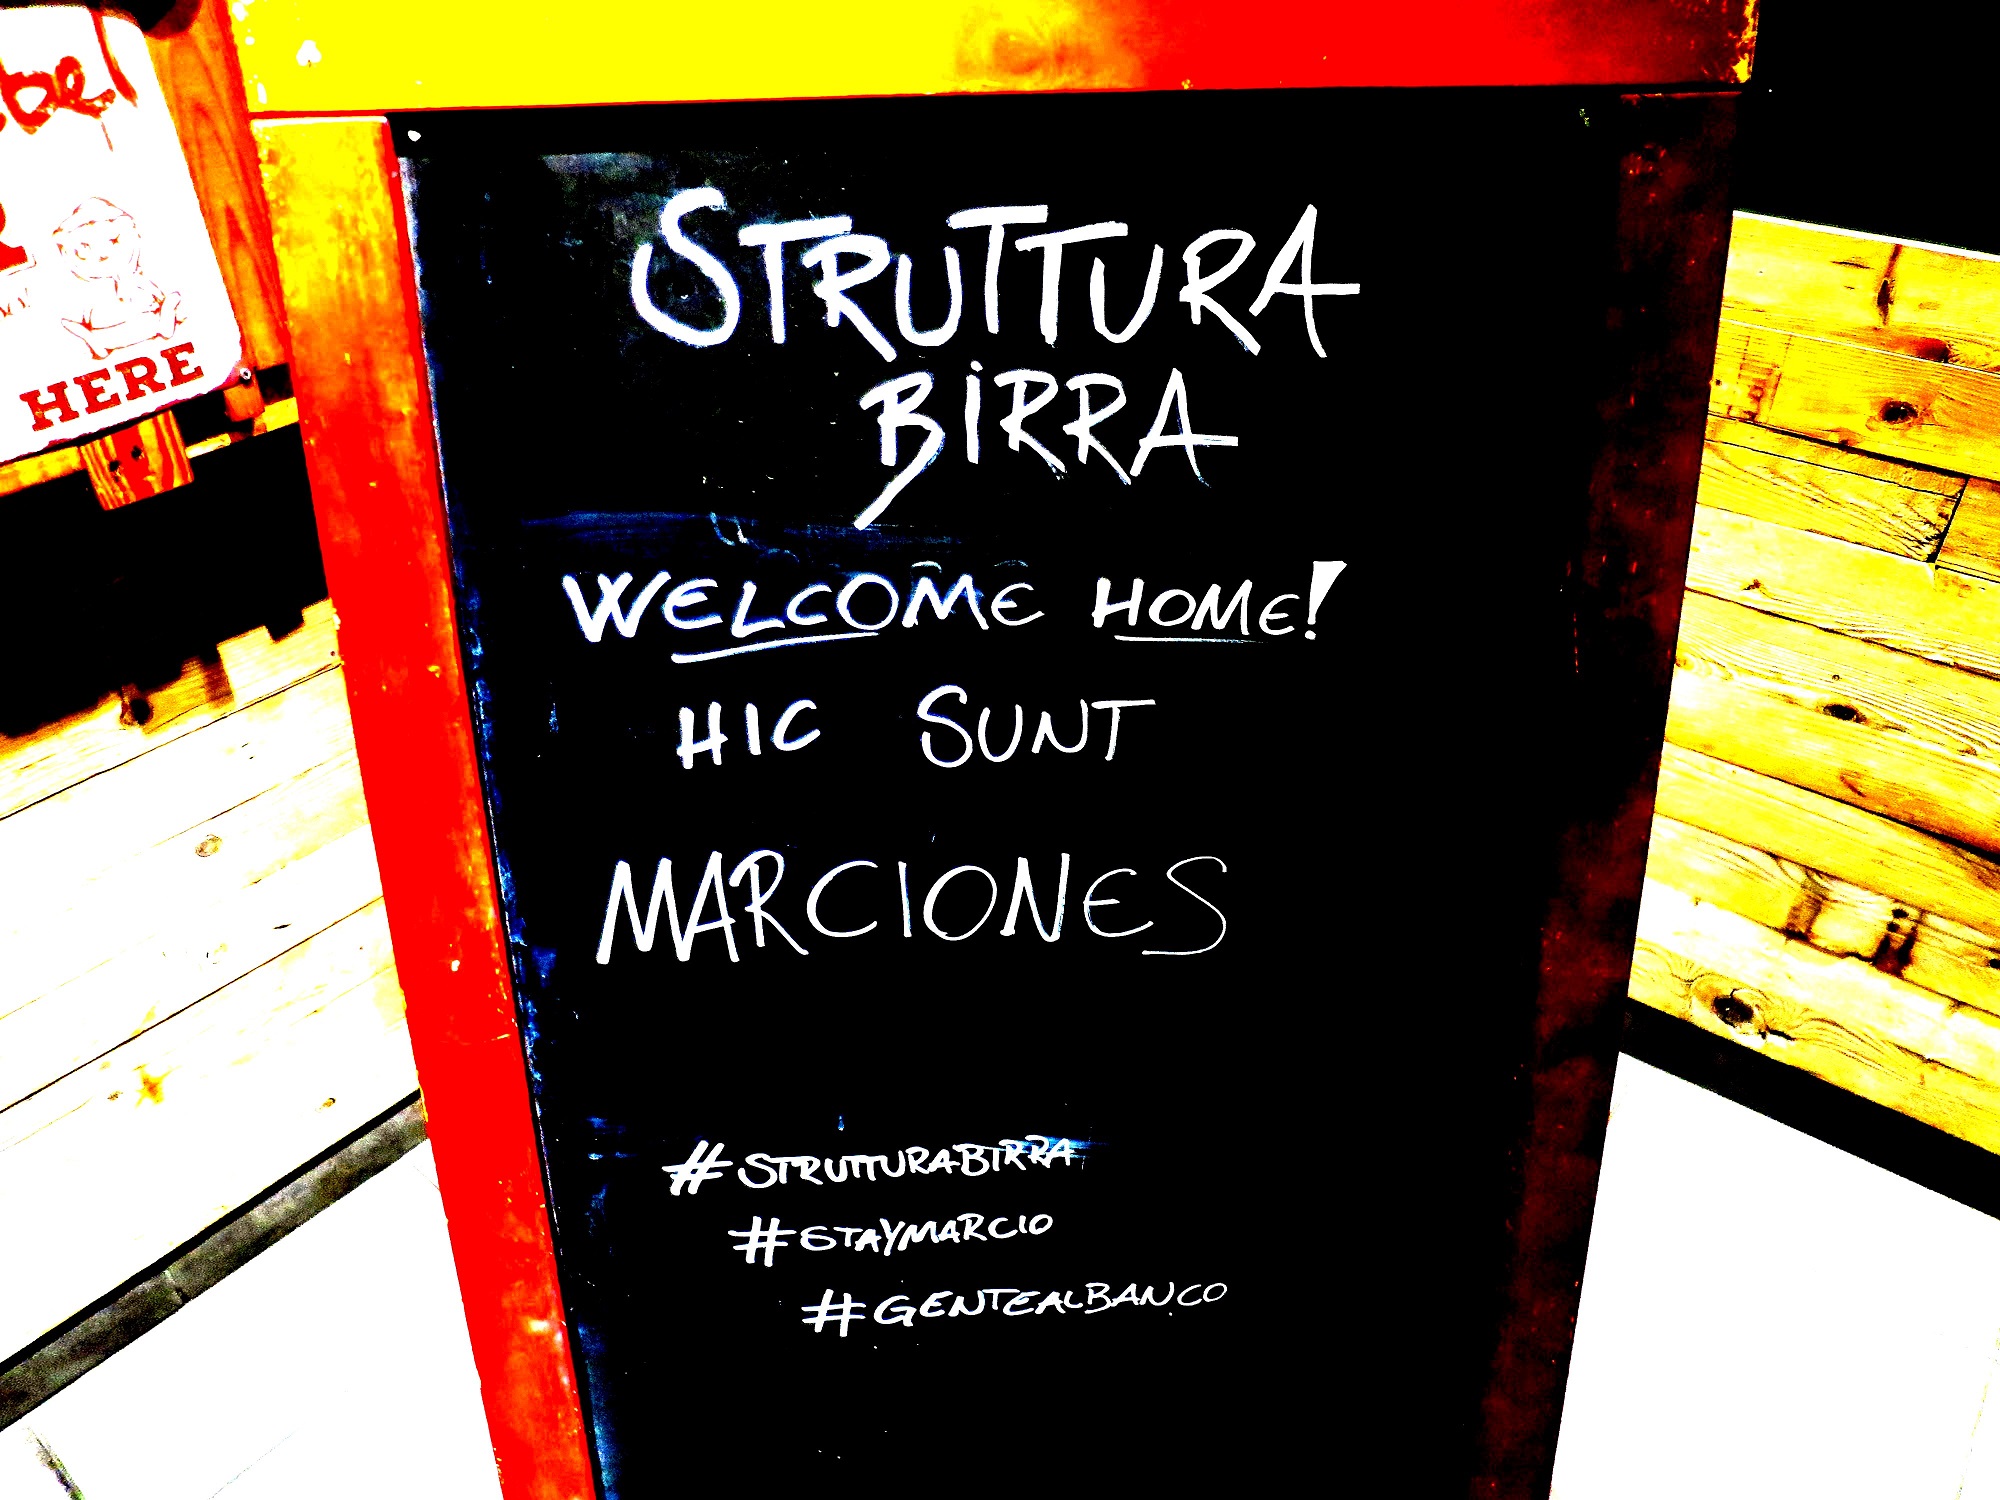 STRUTTURA
BIRRA
WELCOME HOME!
HIC SUNT
MARCIONES
#STRUTTURABIRRA
#STAYMARCIO
#GENTEALBANCO
HERE